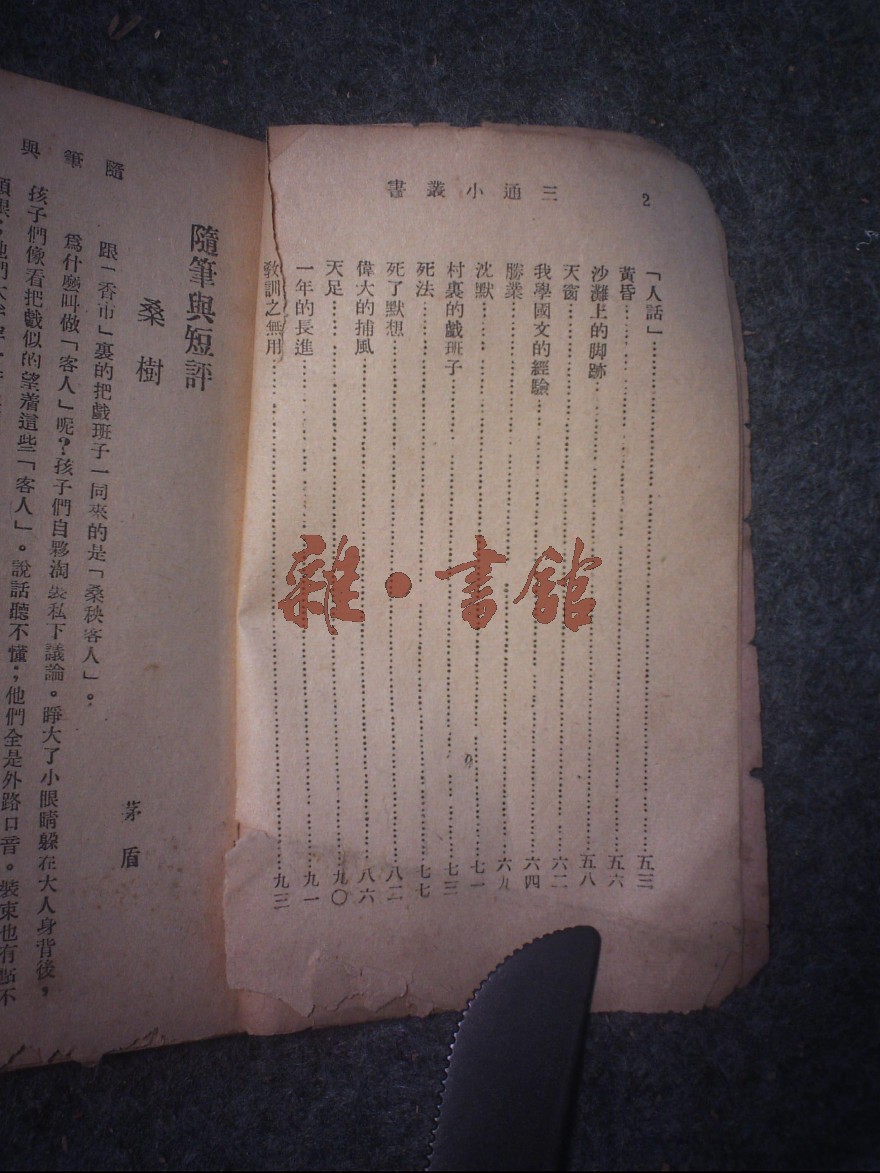 2
三通小叢書
「人話」……五三
黃昏……五六
沙灘上的脚跡……五八
天窗……六二
我學國文的經驗……六四
勝業……六九
沈默……七一
村裏的戲班子……七三
死法……七七
死了默想……八二
偉大的捕風……八六
天足……九〇
一年的長進……九一
教訓之無用……九三
雜·書館
隨筆與
隨筆與短評
桑樹
茅盾
跟「香市」裏的把戲班子一同來的是「桑秧客人」。
爲什麽叫做「客人」呢?孩子們自夥淘裏私下議論。睜大了小眼睛躱在大人身背後,
孩子們像看把戲似的望着這些「客人」。說話聽不懂;他們全是外路口音。裝束也有點不